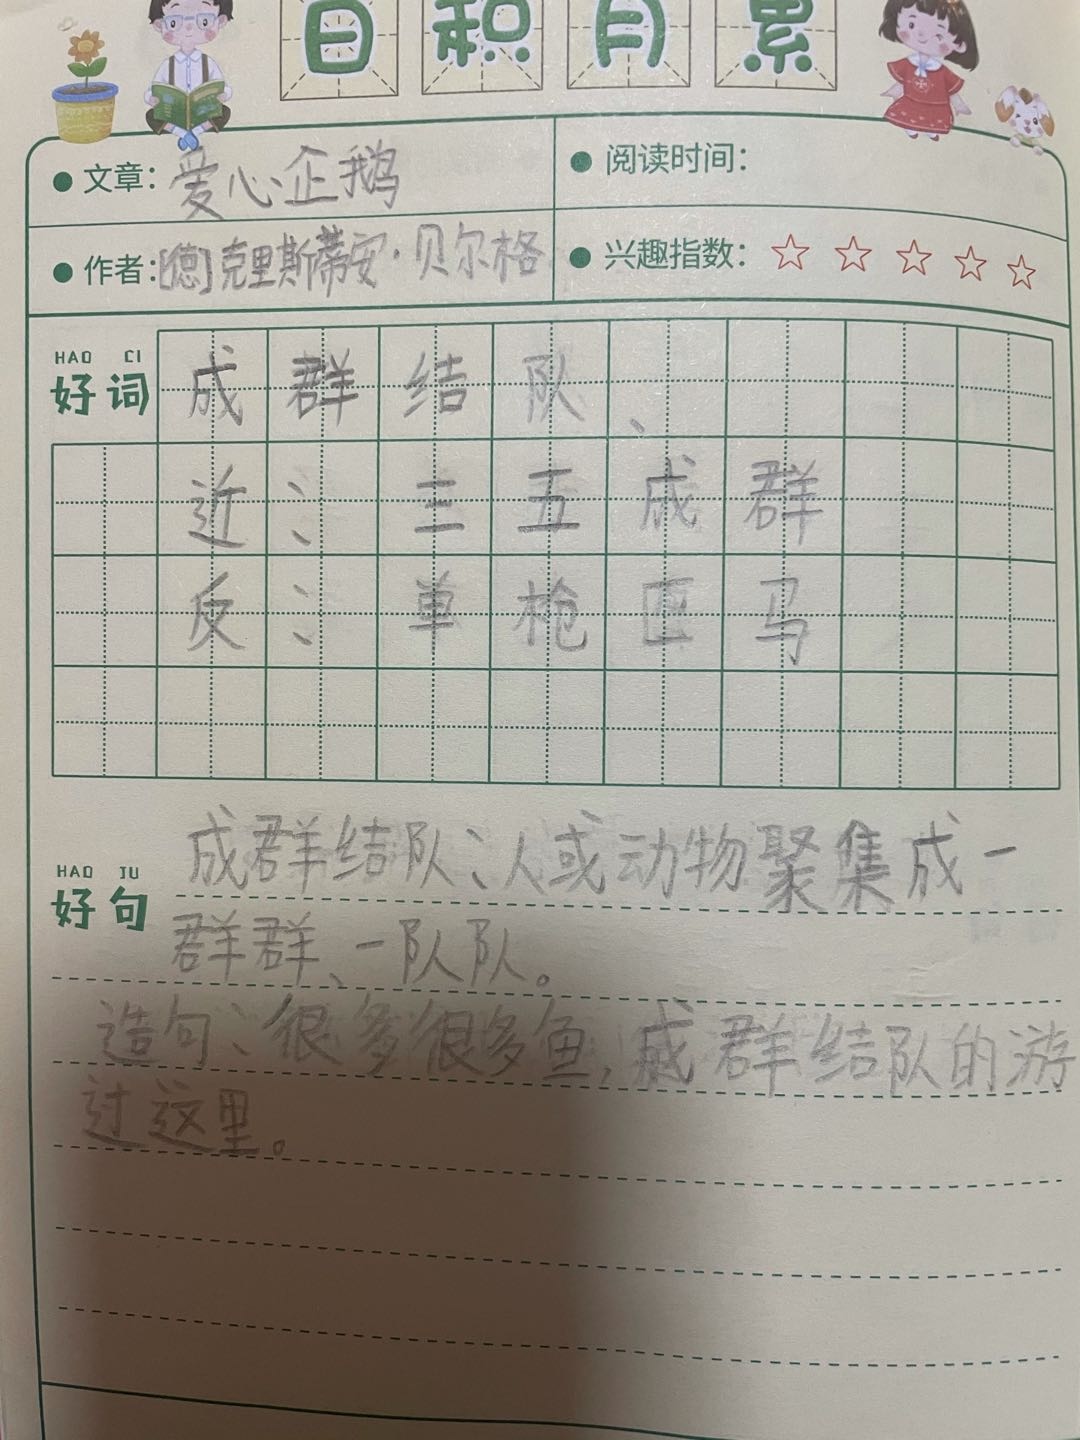 日积月累
文章：爱心企鹅
阅读时间：
作者：[德]克里斯蒂安·贝尔格
兴趣指数：☆☆☆☆☆
HAO CI
好词
成群结队、
近：三五成群
反：单枪匹马
成群结队：人或动物聚集成一
HAO JU
好句
群群、一队队。
造句：很多很多鱼，成群结队的游
过这里。